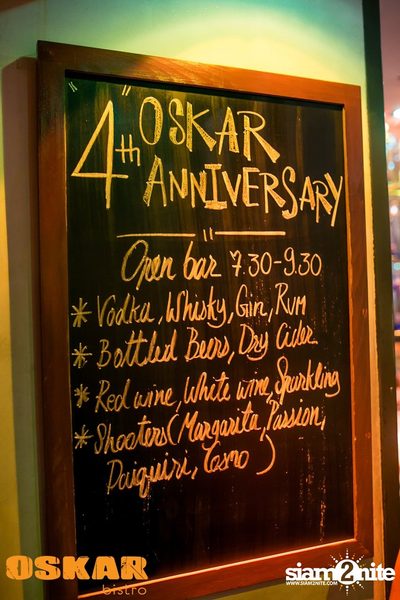 "OSKAR
4th ANNIVERSARY
Open bar 7.30-9.30
* Vodka, Whisky, Gin, Rum
* Bottled Beers, Dry Cider
* Red wine, White wine, Sparkling
* Shooters (Margarita, Passion,
Daiquiri, Cosmo)
OSKAR
bistro
siam2nite
WWW.SIAM2NITE.COM